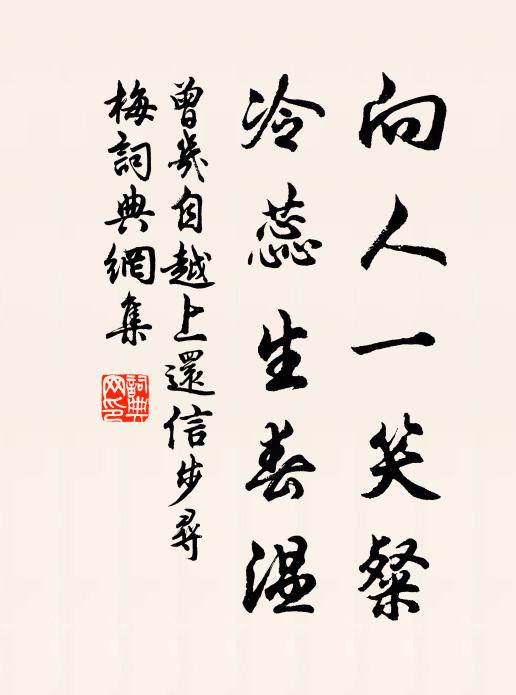 向人一笑粲
冷蕊生春溫
曾幾自越上還信步尋
梅詞典網集
詞典網印